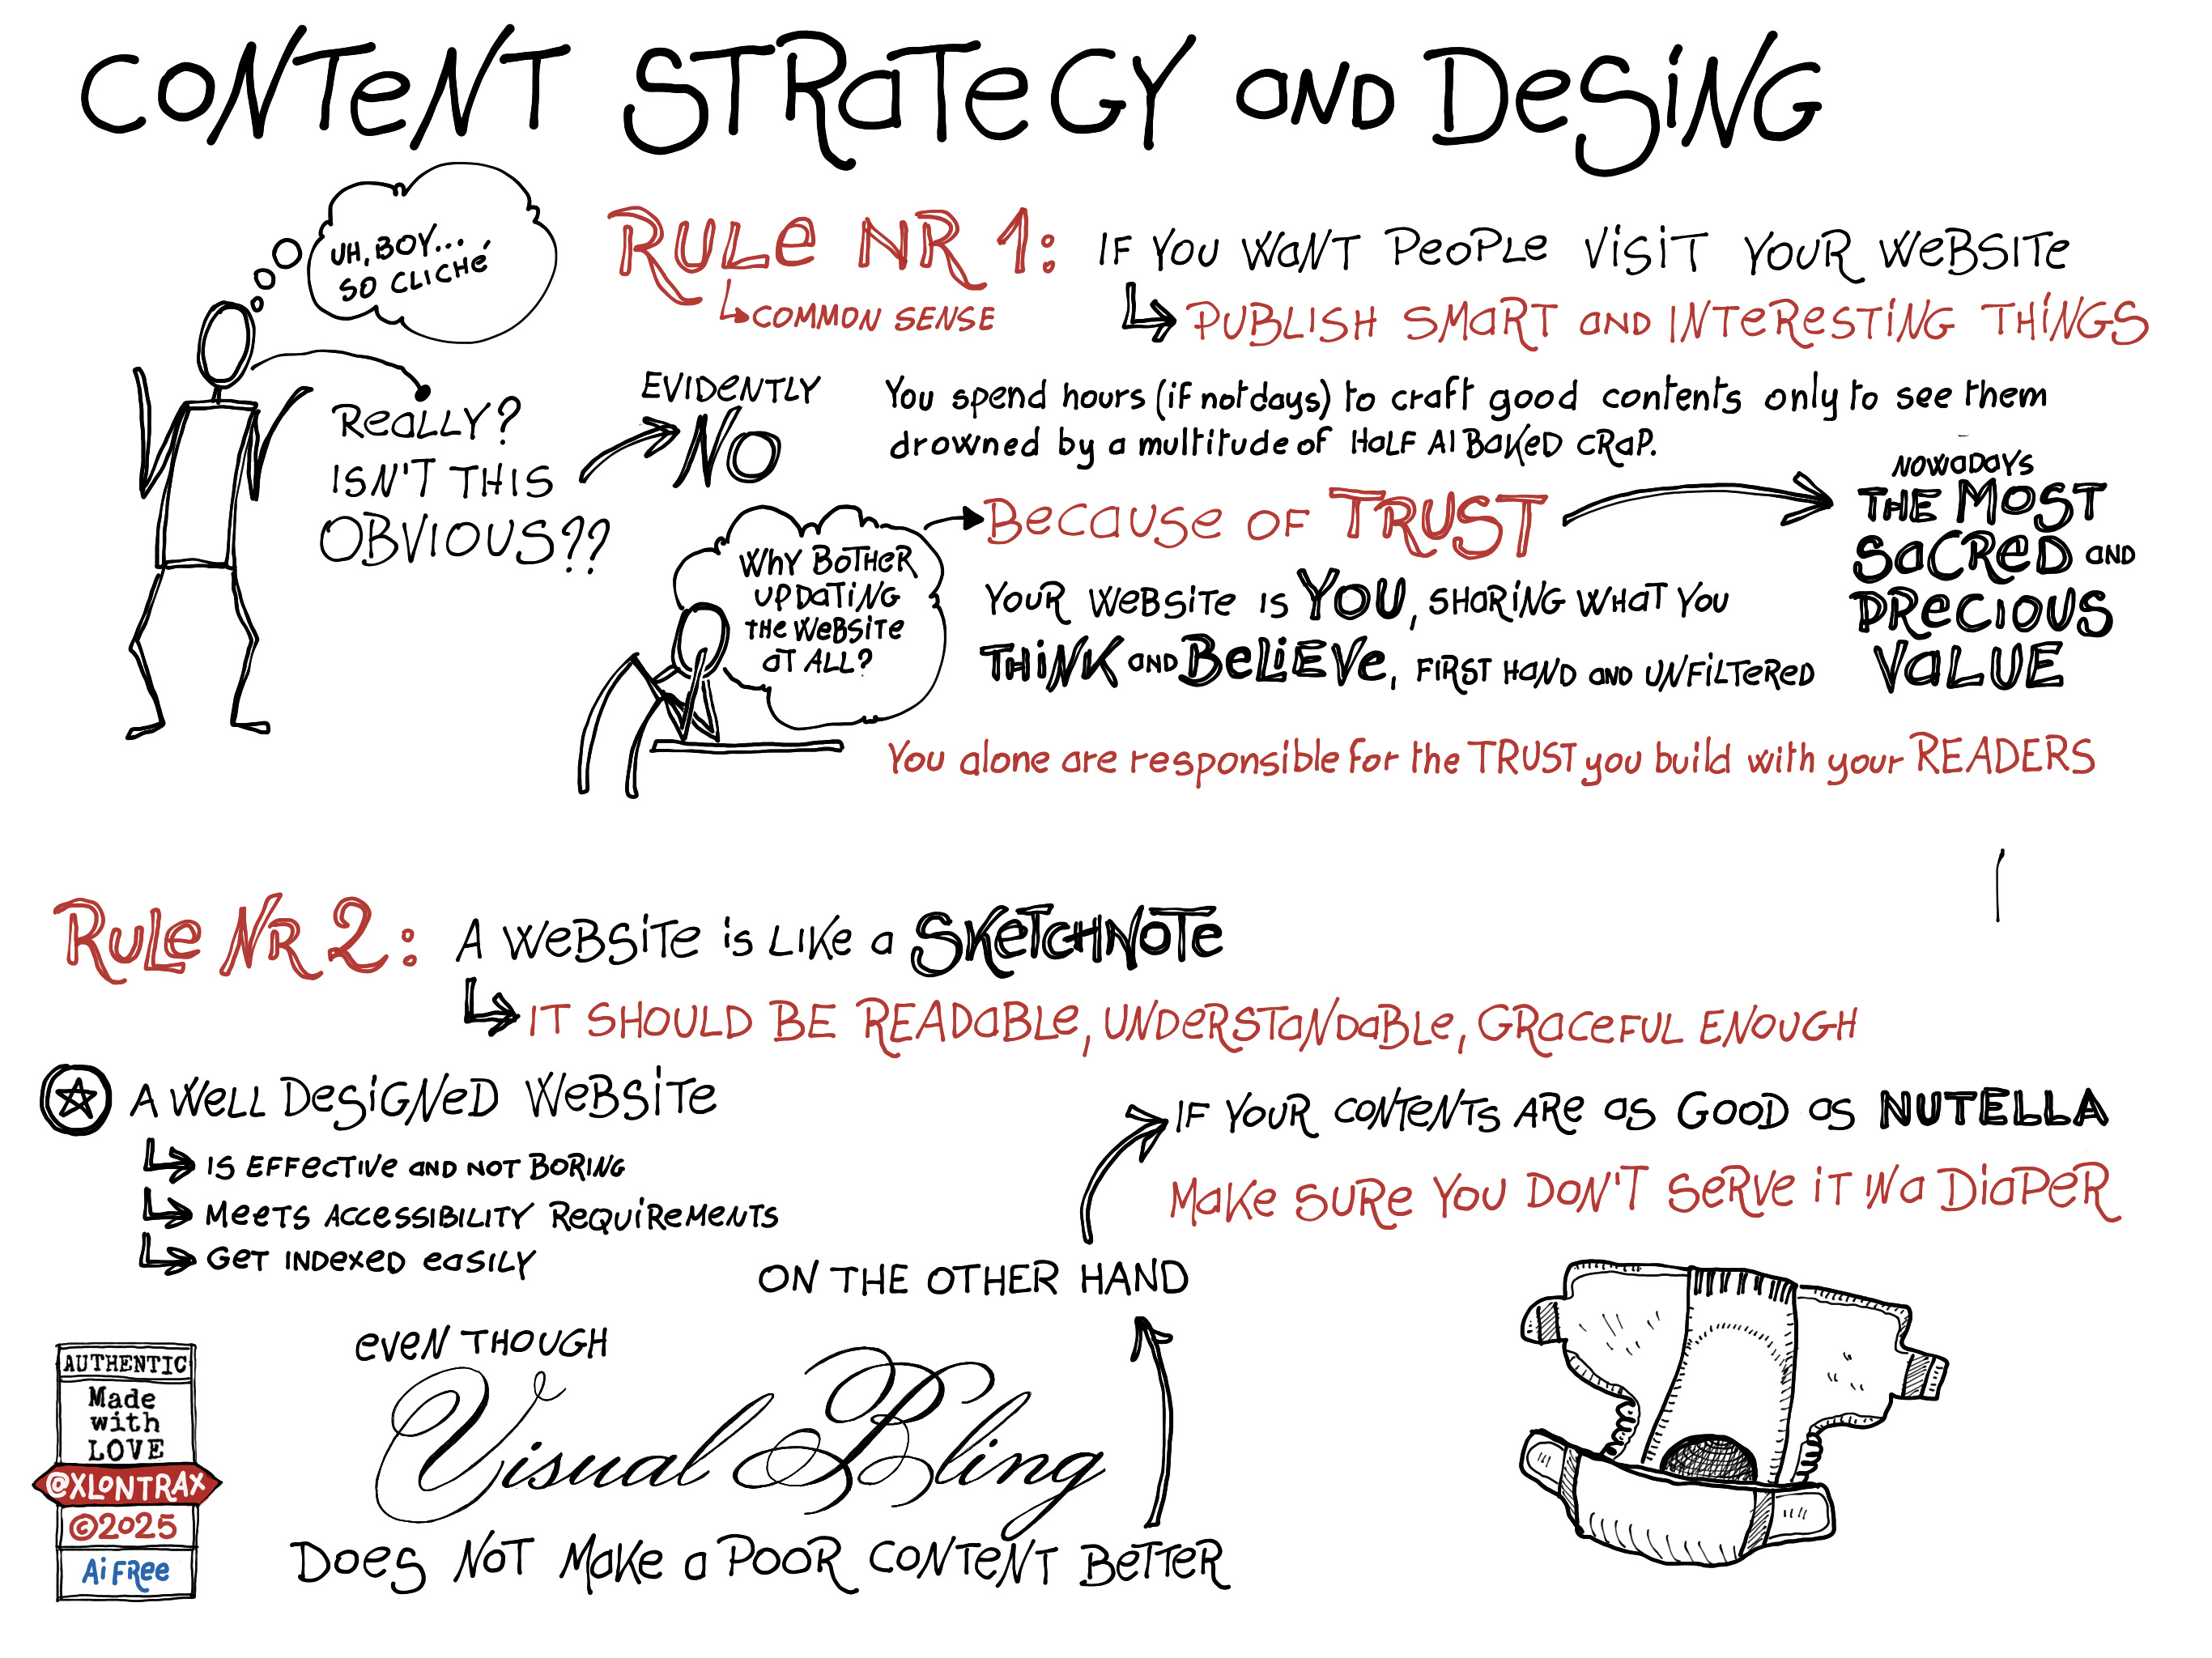 CONTENT STRATEGY AND DESING
UH, BOY...
SO CLICHÉ
RULE NR 1: IF YOU WANT PEOPLE VISIT YOUR WEBSITE
COMMON SENSE
PUBLISH SMART AND INTERESTING THINGS
REALLY?
ISN'T THIS
OBVIOUS??
EVIDENTLY
NO
You spend hours (if not days) to craft good contents only to see them
drowned by a multitude of HALF AI BAKED CRAP.
WHY BOTHER
UPDATING
THE WEBSITE
AT ALL?
BECAUSE OF TRUST
NOWADAYS
THE MOST
SACRED AND
PRECIOUS
VALUE
YOUR WEBSITE IS YOU, SHARING WHAT YOU
THINK AND BELIEVE, FIRST HAND AND UNFILTERED
You alone are responsible for the TRUST you build with your READERS
RULE NR 2: A WEBSITE IS LIKE A SKETCHNOTE
IT SHOULD BE READABLE, UNDERSTANDABLE, GRACEFUL ENOUGH
A WELL DESIGNED WEBSITE
IS EFFECTIVE AND NOT BORING
MEETS ACCESSIBILITY REQUIREMENTS
GET INDEXED EASILY
IF YOUR CONTENTS ARE AS GOOD AS NUTELLA
MAKE SURE YOU DON'T SERVE IT IN A DIAPER
ON THE OTHER HAND
EVEN THOUGH
Visual Bling
DOES NOT MAKE A POOR CONTENT BETTER
AUTHENTIC
Made
with
LOVE
@XLONTRAX
©2025
Ai FREE